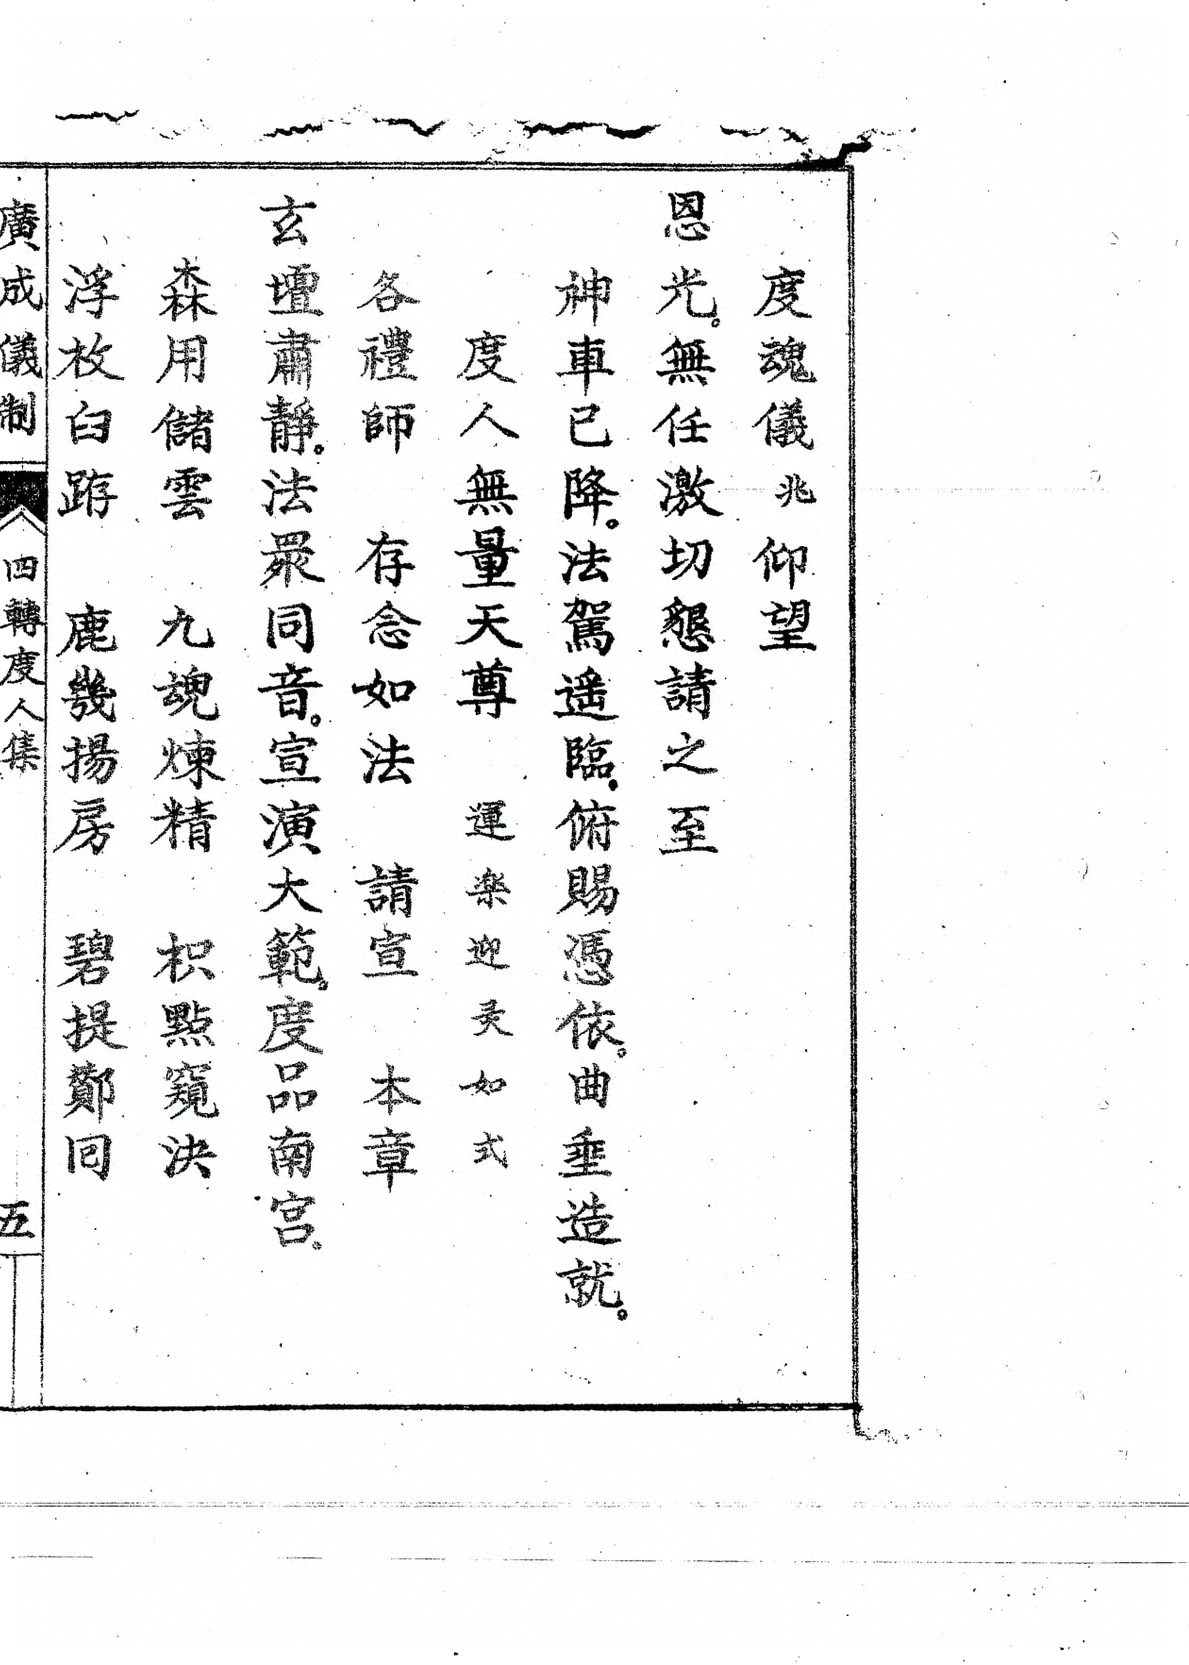 度魂儀兆仰望
恩光。無任激切懇請之至
神車已降。法駕遥臨。俯賜憑依。曲垂造就。
度人無量天尊 運楽迎灵如式
各禮師 存念如法 請宣 本章
玄壇肅靜。法眾同音。宣演大範。度品南宫。
森用儲雲 九魂煉精 枳點窺決
浮枚臼跱 鹿幾揚房 碧提鄭囘
廣成儀制 四轉度人集 五